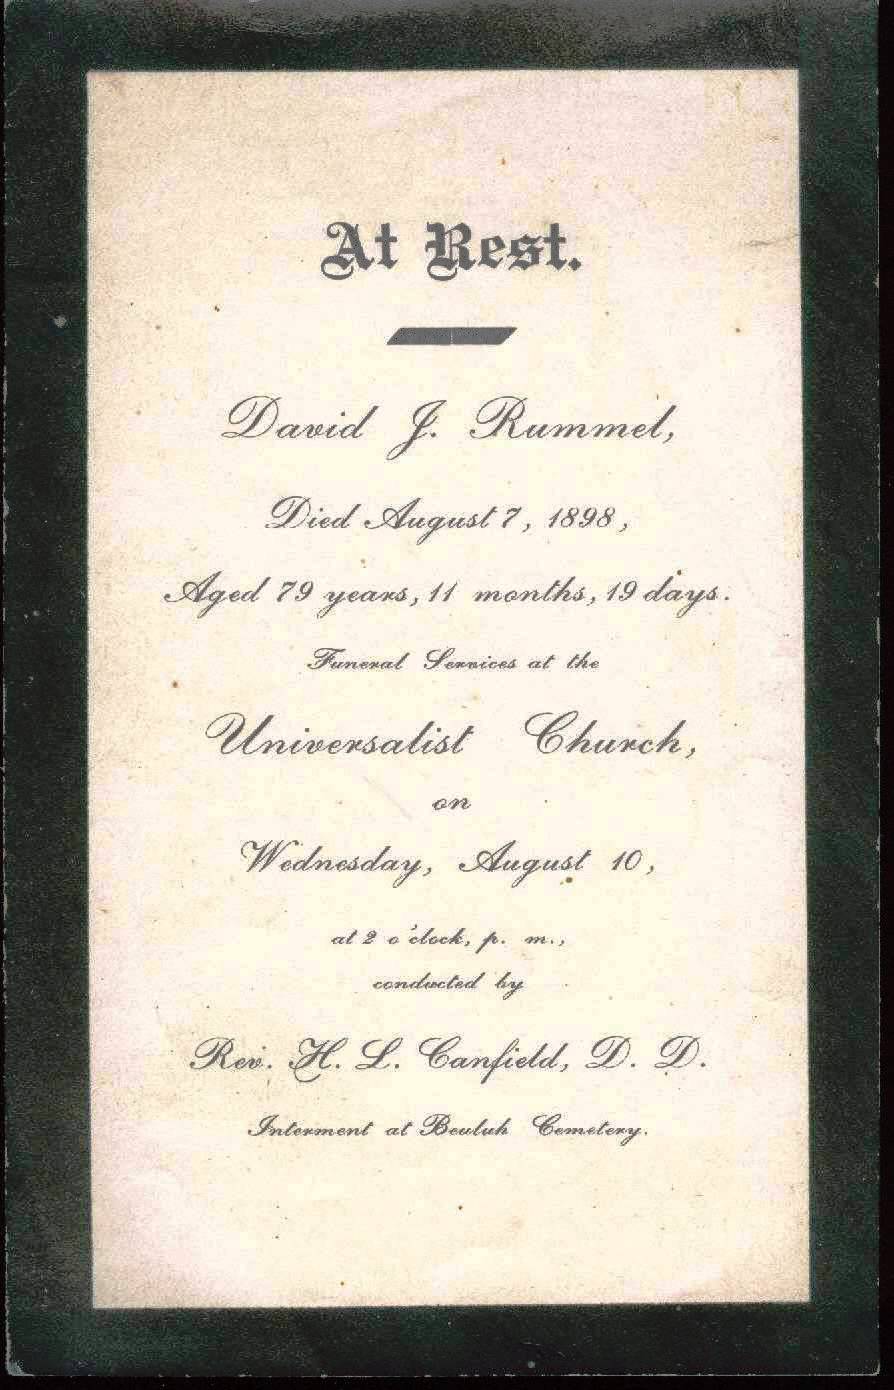 At Rest.
David J. Rummel,
Died August 7, 1898,
Aged 79 years, 11 months, 19 days.
Funeral Services at the
Universalist Church,
on
Wednesday, August 10,
at 2 o'clock, p. m.,
conducted by
Rev. H. L. Canfield, D. D.
Interment at Beulah Cemetery.